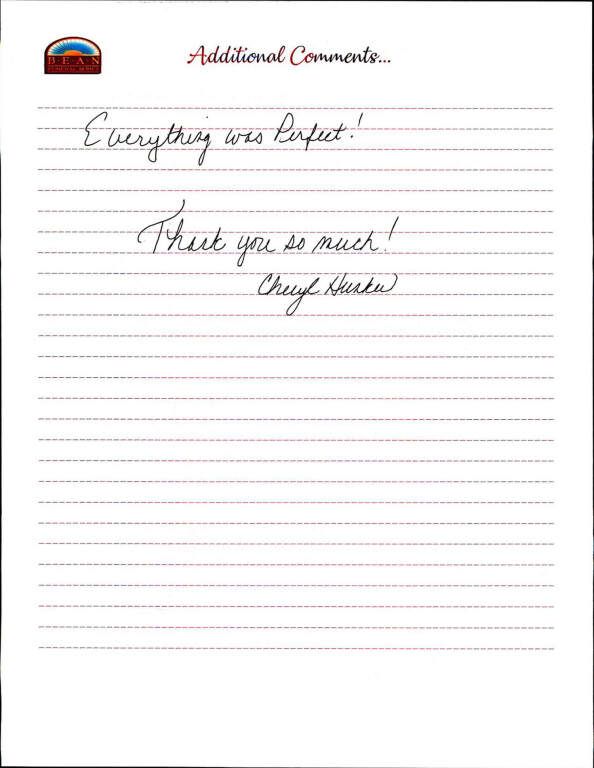 BEAN
Additional Comments...
Everything was Perfect!
Thank you so much!
Cheryl